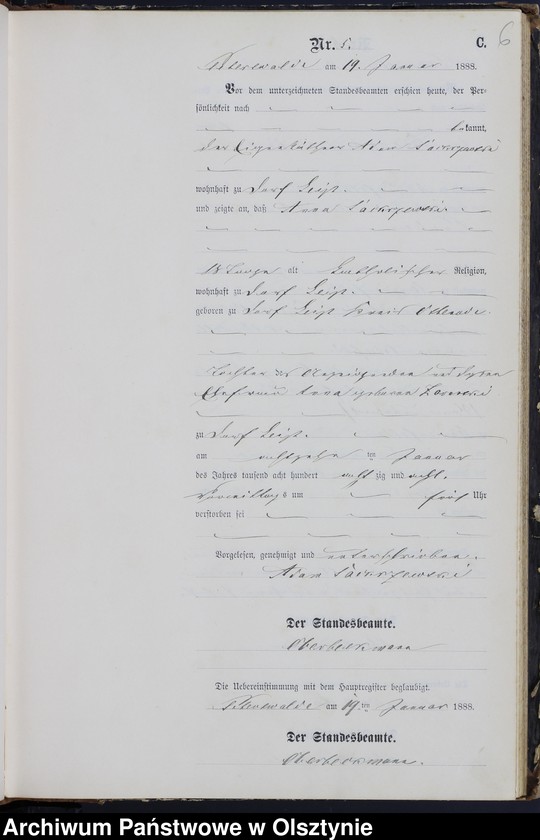 6
Nr. 5. C.
am 19. Januar 1888.
Vor dem unterzeichneten Standesbeamten erschien heute, der Per-
sönlichkeit nach
bekannt,
der Eigenkäthner Adam
wohnhaft zu Dorf Geist.
und zeigte an, daß Anna
18 Tage alt katholischer Religion,
wohnhaft zu Dorf Geist.
geboren zu Dorf Geist Kreis Osterode.
Tochter des Anzeigenden und dessen
Ehefrau Anna geborene
zu Dorf Geist.
am achtzehn ten Januar
des Jahres tausend acht hundert acht zig und acht.
Vormittags um fünf Uhr
verstorben sei
Vorgelesen, genehmigt und unterschrieben.
Adam
Der Standesbeamte.
Oberbeckmann
Die Uebereinstimmung mit dem Hauptregister beglaubigt.
am 19ten Januar 1888.
Der Standesbeamte.
Oberbeckmann.
Archiwum Państwowe w Olsztynie